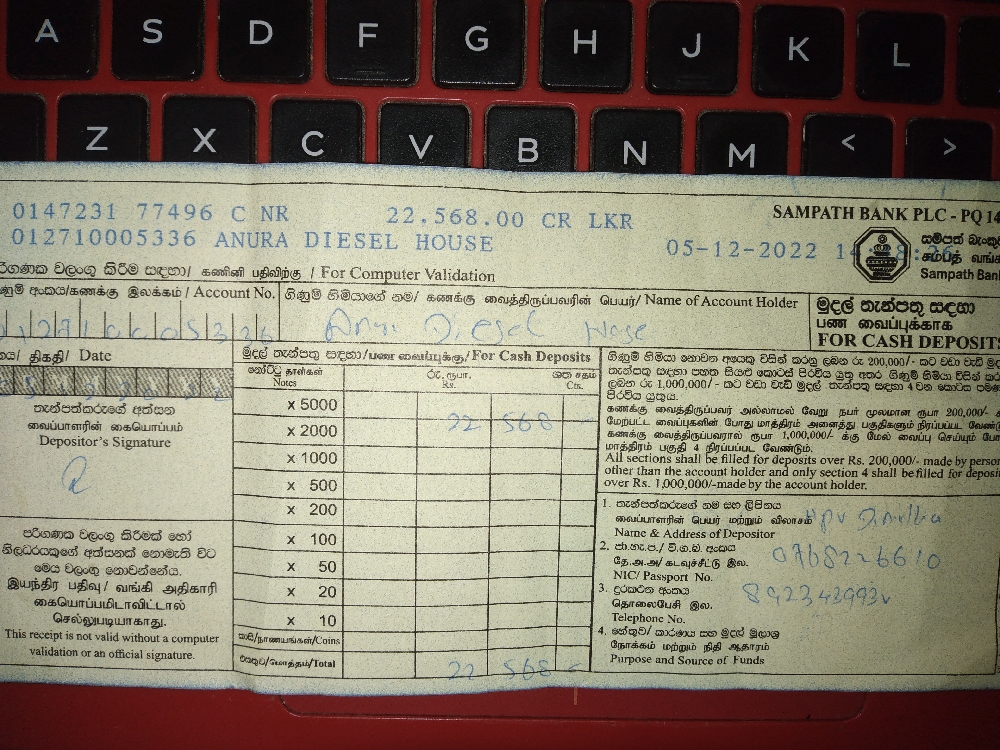 A S D F G H J K L
Z X C V B N M < >
0147231 77496 C NR 22.568.00 CR LKR
012710005336 ANURA DIESEL HOUSE
05-12-2022
SAMPATH BANK PLC - PQ 14
සම්පත් බැංකු
சம்பத் வங்
Sampath Ban
පරිගණක වලංගු කිරීම සඳහා/ கணினி பதிவிற்கு / For Computer Validation
ගිණුම් අංකය/கணக்கு இலக்கம் / Account No.
ගිණුම් හිමියාගේ නම/ கணக்கு வைத்திருப்பவரின் பெயர்/ Name of Account Holder
Diesel
මුදල් තැන්පතු සඳහා
பண வைப்புக்காக
FOR CASH DEPOSITS
திகதி/ Date
තැන්පත්කරුගේ අත්සන
வைப்பாளரின் கையொப்பம்
Depositor's Signature
පරිගණක වලංගු කිරීමක් හෝ
නිලධරයකුගේ අත්සනක් නොමැති විට
මෙය වලංගු නොවන්නේය.
இயந்திர பதிவு/ வங்கி அதிகாரி
கையொப்பமிடாவிட்டால்
செல்லுபடியாகாது.
This receipt is not valid without a computer
validation or an official signature.
මුදල් තැන්පතු සඳහා/பண வைப்புக்கு/For Cash Deposits
නෝට්ටු தாள்கள்
Notes
රු. ரூபா.
Rs.
ශත சதம்
Cts.
x 5000
x 2000
22 568 -
x 1000
x 500
x 200
x 100
x 50
x 20
x 10
කාසි/நாணயங்கள்/Coins
එකතුව/மொத்தம்/Total 22 568 -
ගිණුම් හිමියා නොවන අයෙකු විසින් කරනු ලබන රු 200,000/- කට වඩා වැඩි
තැන්පතු සඳහා පහත සියළු කොටස් පිරවිය යුතු අතර ගිණුම් හිමියා විසින්
ලබන රු 1,000,000/- කට වඩා වැඩි මුදල් තැන්පතු සඳහා 4 වන කොටස
පිරවිය යුතුය.
கணக்கு வைத்திருப்பவர் அல்லாமல் வேறு நபர் மூலமான ரூபா 200,000/-
மேற்பட்ட வைப்புகளின் போது மாத்திரம் அனைத்து பகுதிகளும் நிரப்பப்பட
கணக்கு வைத்திருப்பவரால் ரூபா 1,000,000/- க்கு மேல் வைப்பு செய்யும்
மாத்திரம் பகுதி 4 நிரப்பப்பட வேண்டும்.
All sections shall be filled for deposits over Rs. 200,000/- made by person
other than the account holder and only section 4 shall be filled for deposits
over Rs. 1,000,000/-made by the account holder.
1. තැන්පත්කරුගේ නම සහ ලිපිනය
வைப்பாளரின் பெயர் மற்றும் விலாசம்
Name & Address of Depositor
2. ජා.හැ.ප./ වි.ග.බ. අංකය
தே.அ.அ/ கடவுச்சீட்டு இல.
NIC/ Passport No.
0768226610
3. දුරකථන අංකය
தொலைபேசி இல.
Telephone No.
892343993v
4. හේතුව/ කාරණය සහ මුදල් මූලාශ්‍ර
நோக்கம் மற்றும் நிதி ஆதாரம்
Purpose and Source of Funds